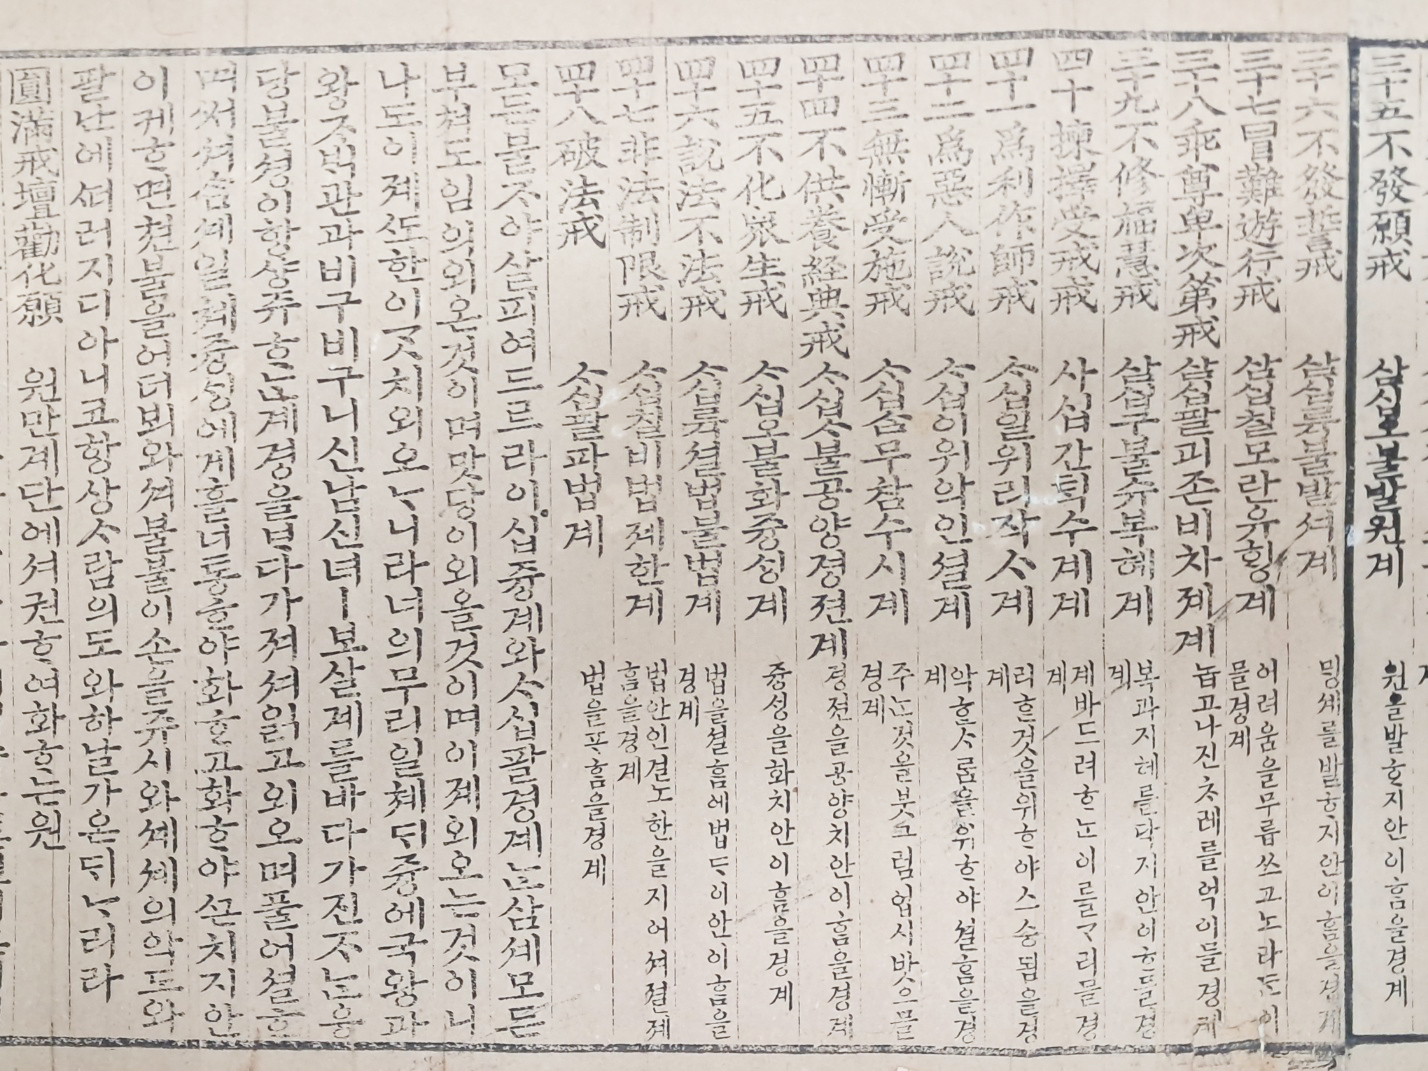 三十五不發願戒 삼십오불발원계 원을발ᄒᆞ지안이흠을경계
三十六不發誓戒 삼십륙불발셔계 밍셰를발ᄒᆞ지안이흠을경계
三十七冒難遊行戒 삼십칠모란유횡계 어려움을무릅쓰고노라ᄃᆞᆫ이믈경계
三十八乖尊卑次第戒 삼십팔괴존비차졔계 놉고나진ᄎᆞ레를억이믈경계
三十九不修福慧戒 삼십구불슈복혜계 복과지혜를닥지안이ᄒᆞ믈경계
四十揀擇受戒戒 사십간턱수계계 계바드려ᄒᆞᄂᆞᆫ이를ᄀᆞ리믈경계
四十一爲利作師戒 ᄉᆞ십일위리작ᄉᆞ계 리ᄒᆞᆫ것을위ᄒᆞ야스승됨을경계
四十二爲惡人說戒 ᄉᆞ십이위악인셜계 악ᄒᆞᆫᄉᆞᄅᆞᆷ을위ᄒᆞ야셜흠을경계
四十三無慚受施戒 ᄉᆞ십슴무참수시계 주ᄂᆞᆫ것을붓그럼업시바드믈경계
四十四不供養経典戒 ᄉᆞ십ᄉᆞ불공양경젼계 경젼을공양치안이흠을경계
四十五不化衆生戒 ᄉᆞ십오불화즁싱계 즁싱을화치안이흠을경계
四十六說法不法戒 ᄉᆞ십륙셜법불법계 법을셜흠에법ᄃᆞ이안이흠을경계
四十七非法制限戒 ᄉᆞ십칠비법졔한계 법안인걸노한을지어셔졀졔흠을경계
四十八破法戒 ᄉᆞ십팔파법계 법을프흠을경계
모든불ᄌᆞ야살피여드르라이십즁계와ᄉᆞ십팔경계ᄂᆞᆫ삼셰모든
부쳐도임의외온것이며맛당이외올것이며이졔외오는것이니
나도이졔ᄯᅩ한이ᄀᆞᆺ치외오ᄂᆞ니라너의무리일쳬ᄃᆡ즁에국왕과
왕ᄌᆞᄇᆡᆨ관과비구비구니신남신녀ㅣ보살계를바다가진ᄌᆞᄂᆞᆫ응
당불셩이항샹쥬ᄒᆞᄂᆞᆫ계경을바다가져셔읽고외오며풀어셜ᄒᆞ
며써셔슴셰일쳬즁싱에계흘녀통ᄒᆞ야화ᄒᆞ고화ᄒᆞ야ᄭᅳᆫ치지안
이케ᄒᆞ면쳔불을어더뵈와셔불불이손을쥬시와셰셰의악도와
팔난에ᄯᅥ러지디아니코항상ᄉᆞ람의도와하날가온ᄃᆡᄂᆞ리라
圓滿戒壇勸化願 원만계단에셔권ᄒᆞ여화ᄒᆞ는원